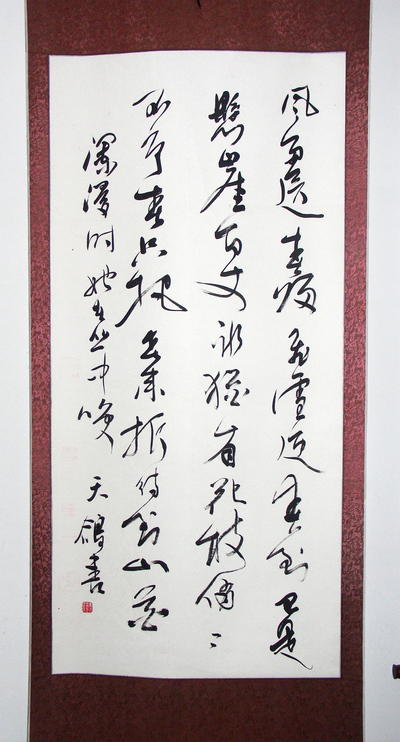 风雨送春归飞雪迎春到已是
懸崖百丈冰猶有花枝俏〻
不争春只把春来报待到山花
瀾漫时她在丛中笑 天鸽書